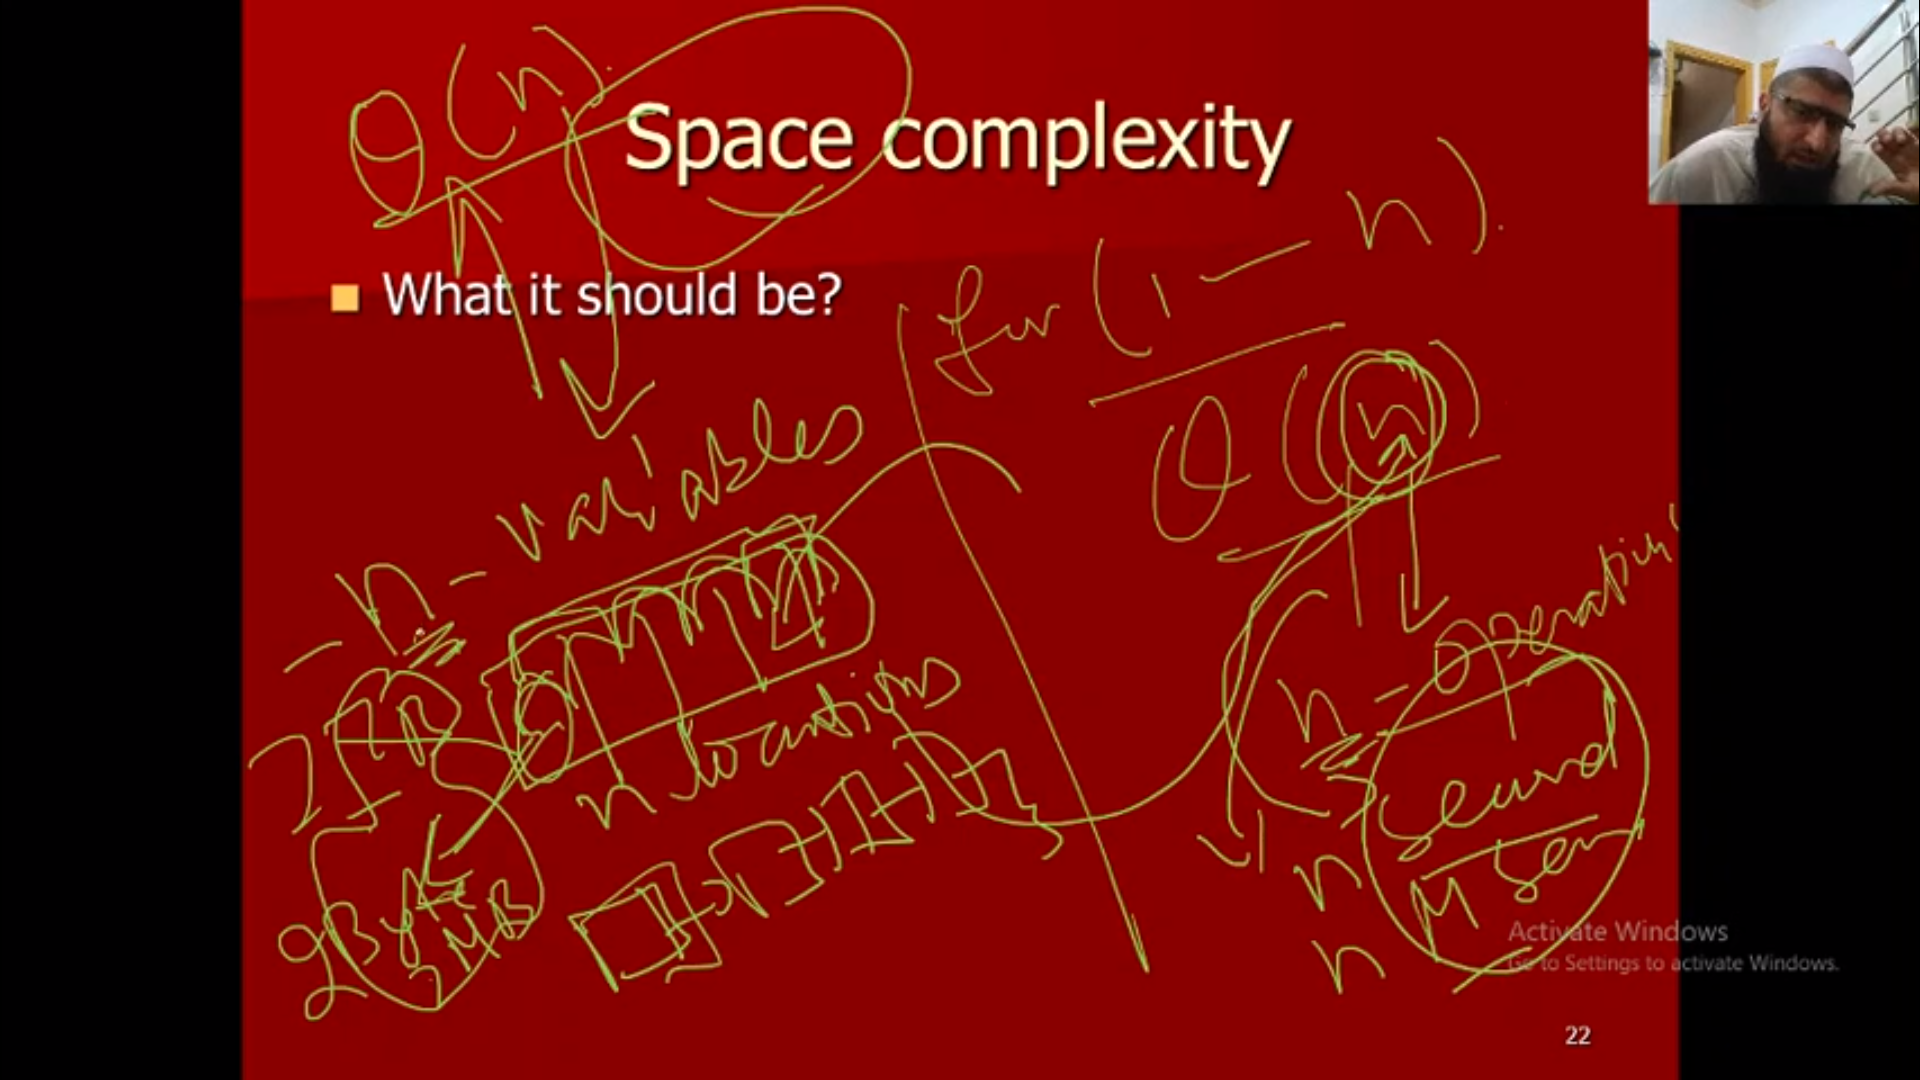 θ(n).
Space complexity
What it should be?
for (1 — n).
θ(n)
- n - variables
n locations
2Byte
2MB
n - operation
Second
M Sec
n
n
Activate Windows
Go to Settings to activate Windows.
22